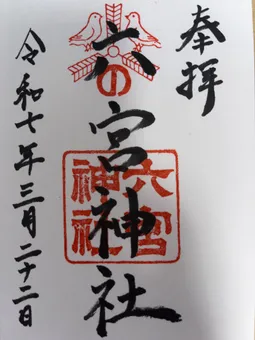 奉拝
六の宮神社
六宮神社
令和七年三月二十二日